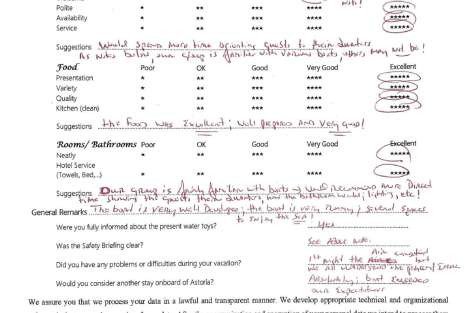 Polite * ** *** **** *****
Availability * ** *** **** *****
Service * ** *** **** *****
Suggestions Would spend more time orienting guests to their quarters
As noted below, our group is familiar with various boats, others may not be!
Food Poor OK Good Very Good Excellent
Presentation * ** *** **** *****
Variety * ** *** **** *****
Quality * ** *** **** *****
Kitchen (clean) * ** *** **** *****
Suggestions The Food was Excellent; well prepared and very good!
Rooms/ Bathrooms Poor OK Good Very Good Excellent
Neatly * ** *** **** *****
Hotel Service
(Towels, Bed,..) * ** *** **** *****
Suggestions Our group is fairly familiar with boats → would recommend more directed
time showing the guests their quarters, how the bathroom works, lighting, etc!
General Remarks The boat is very well Developed; the boat is very roomy; several spaces
to enjoy the Sea!
Were you fully informed about the present water toys? yes
Was the Safety Briefing clear? See Above note.
Did you have any problems or difficulties during your vacation? 1st night the Air
we all understood the
Would you consider another stay onboard of Astoria? Absolutely; boat exceeded
our expectations
We assure you that we process your data in a lawful and transparent manner. We develop appropriate technical and organizational